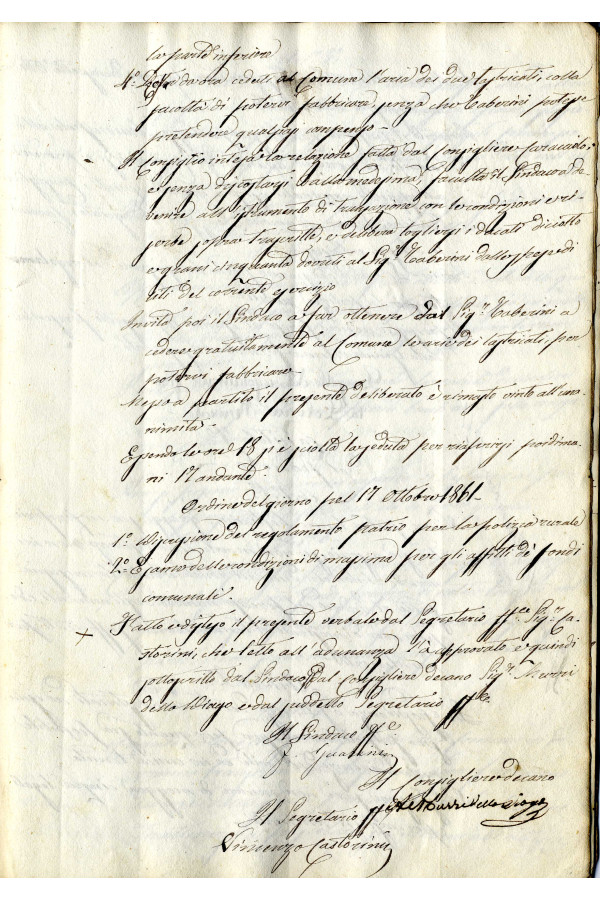 la parte inferiore
4.° Resta da ora ceduta al Comune l'aria dei due lastricati, colla
facoltà di potervi fabbricare, senza che Taberini potesse
pretendere qualsiasi compenso -
Il Consiglio intesa la relazione fatta dal Consigliere Saracusto,
e senza discostarsi dalla medesima, facultà il Sindaco a de-
venire all'istrumento di transazione con le condizioni e ri-
serbe sopra trascritte, e delibera togliersi i ducati diciotto
e grani cinquanta dovuti al Sig.r Taberini dalle spese di
del corrente esercizio
Invita poi il Sindaco a far ottenere dal Sig.r Taberini a
cedere gratuitamente al Comune le arie dei lastricati, per
potervi fabbricare.
Messo a partito il presente deliberato è rimasto vinto all'una-
nimità.
Essendo le ore 18 si è sciolta la seduta per riaversi per dima-
ni 17 andante.
Ordine del giorno pel 17 Ottobre 1861
1.° Discussione del regolamento patrio per la polizia rurale
2.° Esame delle condizioni di massima per gli affitti de' fondi
comunali.
Fatto e disteso il presente verbale dal Segretario ff.e Sig.r Ca-
storini, che letto all'adunanza l'à approvato e quindi
sottoscritto dal Sindaco, dal Consigliere decano Sig.r Marri
dello Diago e dal suddetto Segretario ff.e
Il Sindaco ff.e
Il Consigliere decano
Il Segretario ff.e
Vincenzo Castorini